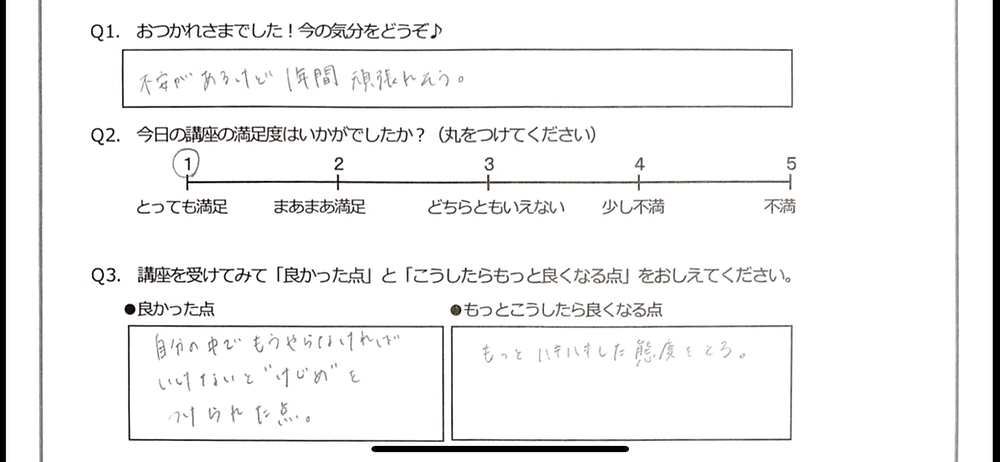 Q1. おつかれさまでした！今の気分をどうぞ♪
不安があるけど 1年間 頑張れそう。
Q2. 今日の講座の満足度はいかがでしたか？（丸をつけてください）
1 2 3 4 5
とっても満足 まあまあ満足 どちらともいえない 少し不満 不満
Q3. 講座を受けてみて「良かった点」と「こうしたらもっと良くなる点」をおしえてください。
●良かった点
自分の中で もうやらなければ
いけないと "けじめ" を
つけられた点。
●もっとこうしたら良くなる点
もっと ハキハキした態度をとる。